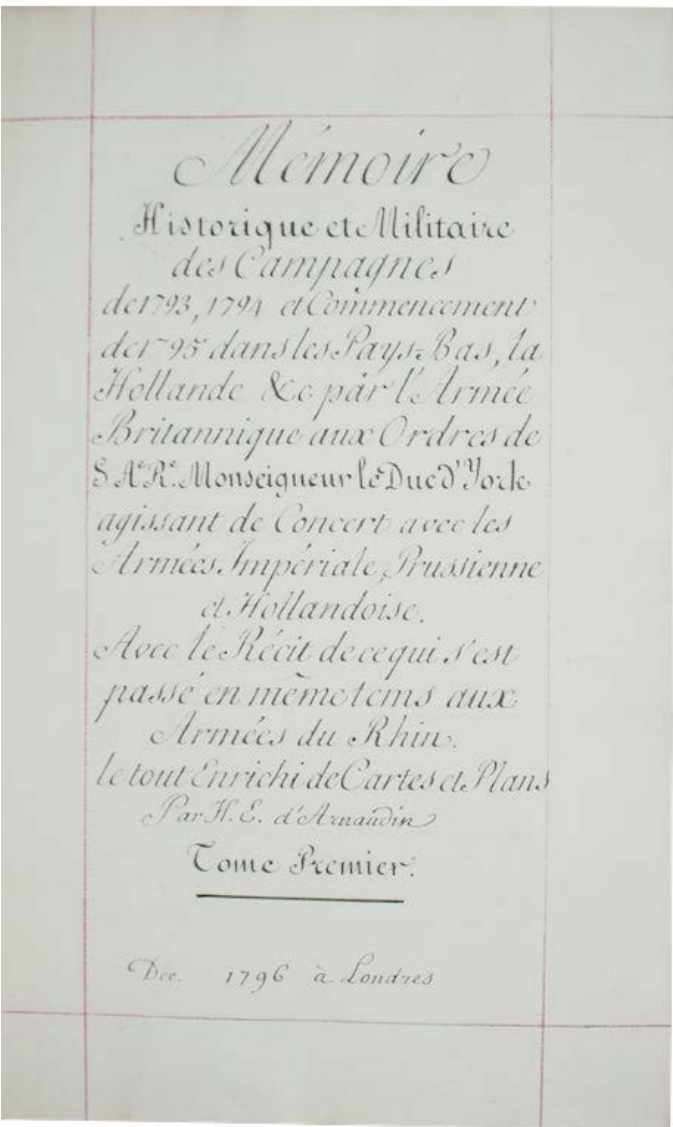 Mémoire
Historique et Militaire
des Campagnes
de 1793, 1794 et Commencement
de 1795 dans les Pays-Bas, la
Hollande &c par l'Armée
Britannique aux Ordres de
S. Ae. Re. Monseigneur le Duc d'York
agissant de Concert avec les
Armées Impériale, Prussienne
et Hollandoise.
Avec le Récit de ce qui s'est
passé en même tems aux
Armées du Rhin.
le tout Enrichi de Cartes et Plans
Par H. E. d'Arnaudin
Tome Premier.
Dec. 1796 à Londres